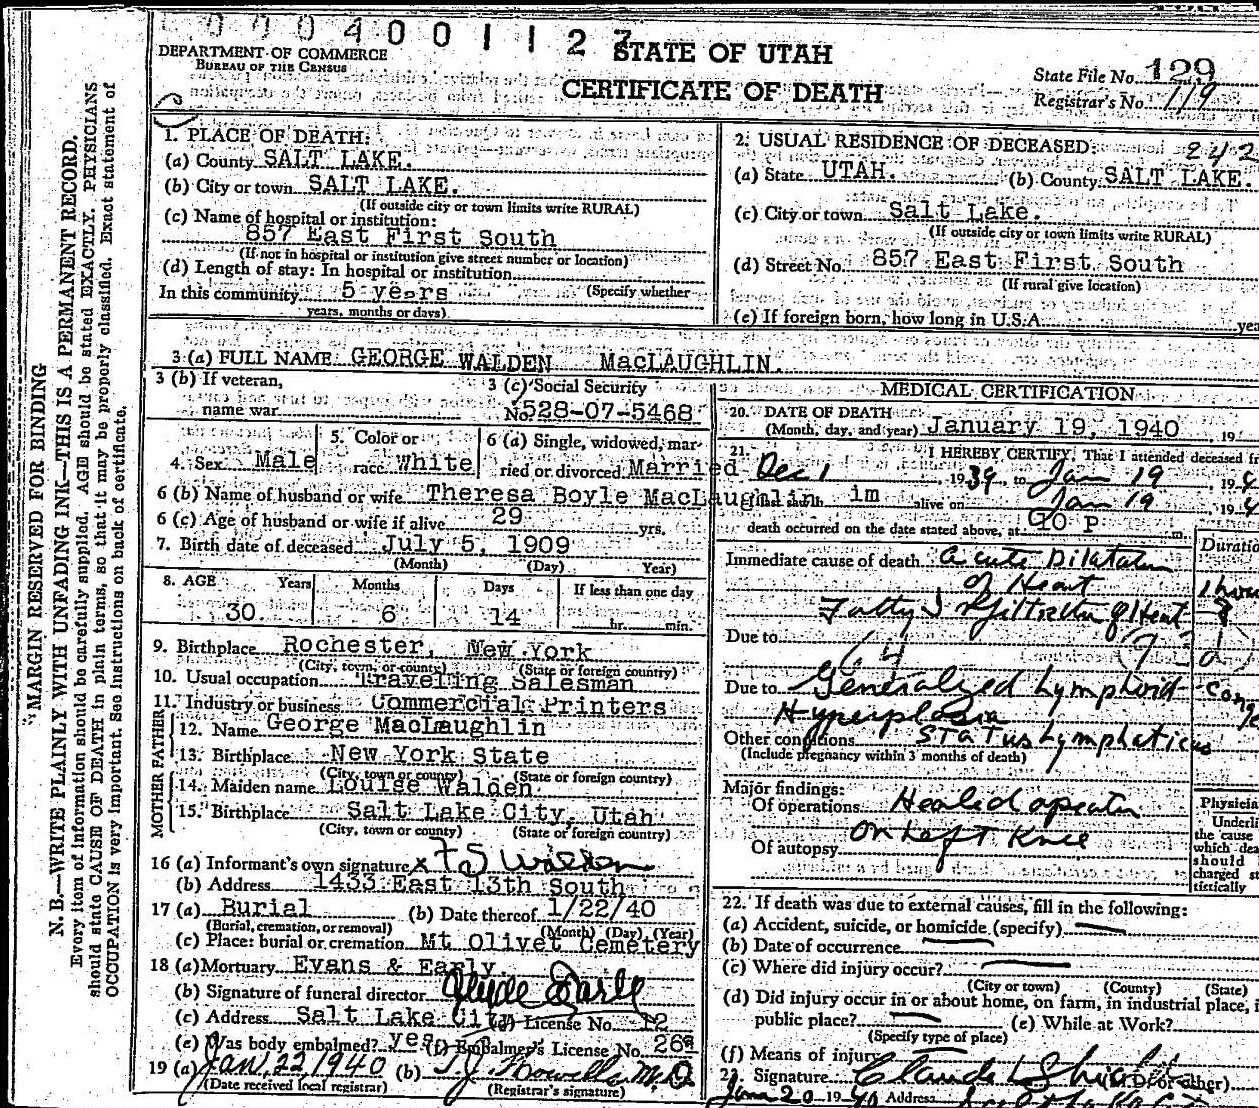 0004001127
DEPARTMENT OF COMMERCE
BUREAU OF THE CENSUS
STATE OF UTAH
CERTIFICATE OF DEATH
State File No. 129
Registrar's No. 119
"MARGIN RESERVED FOR BINDING
N. B.—WRITE PLAINLY WITH UNFADING INK—THIS IS A PERMANENT RECORD.
Every item of information should be carefully supplied. AGE should be stated EXACTLY. PHYSICIANS
should state CAUSE OF DEATH in plain terms, so that it may be properly classified. Exact statement of
OCCUPATION is very important. See instructions on back of certificate.
1. PLACE OF DEATH:
(a) County SALT LAKE.
(b) City or town SALT LAKE.
(If outside city or town limits write RURAL)
(c) Name of hospital or institution:
857 East First South
(If not in hospital or institution give street number or location)
(d) Length of stay: In hospital or institution
In this community 5 years (Specify whether
years, months or days)
2. USUAL RESIDENCE OF DECEASED:
242
(a) State UTAH. (b) County SALT LAKE.
(c) City or town Salt Lake.
(If outside city or town limits write RURAL)
(d) Street No. 857 East First South
(If rural give location)
(e) If foreign born, how long in U.S.A. yea
3 (a) FULL NAME GEORGE WALDEN MacLAUGHLIN.
3 (b) If veteran,
name war
3 (c) Social Security
No. 528-07-5468
4. Sex Male
5. Color or
race White
6 (a) Single, widowed, mar-
ried or divorced Married
6 (b) Name of husband or wife Theresa Boyle MacLaughlin
6 (c) Age of husband or wife if alive 29 yrs.
7. Birth date of deceased July 5, 1909
(Month) (Day) Year)
8. AGE Years Months Days If less than one day
30 6 14 hr. min.
9. Birthplace Rochester, New York
(City, town, or county) (State or foreign country)
10. Usual occupation Traveling Salesman
11. Industry or business Commercial Printers
FATHER
12. Name George MacLaughlin
13. Birthplace New York State
(City, town or county) (State or foreign country)
MOTHER
14. Maiden name Louise Walden
15. Birthplace Salt Lake City, Utah
(City, town or county) (State or foreign country)
16 (a) Informant's own signature x F S Walden
(b) Address 1433 East 13th South
17 (a) Burial (b) Date thereof 1/22/40
(Burial, cremation, or removal) (Month) (Day) (Year)
(c) Place: burial or cremation Mt Olivet Cemetery
18 (a) Mortuary Evans & Early
(b) Signature of funeral director Clyde Early
(c) Address Salt Lake City (d) License No. 12
(e) Was body embalmed? yes (f) Embalmer's License No. 269
19 (a) Jan. 22, 1940 (b) T.J. Howells M.D.
(Date received local registrar) (Registrar's signature)
MEDICAL CERTIFICATION
20. DATE OF DEATH
(Month, day, and year) January 19, 1940 , 19
21. I HEREBY CERTIFY, That I attended deceased fr
Dec 1 , 1939, to Jan 19 , 194
I last saw h im alive on Jan 19 , 194
death occurred on the date stated above, at 10 P m.
Duratio
Immediate cause of death Acute Dilatation
of Heart 1 hour
Fatty Infiltration of Heart ?
Due to
Due to Generalized Lymphoid Cong
Hyperplasia
Other conditions Status Lymphaticus
(Include pregnancy within 3 months of death)
Major findings:
Of operations Healed operation
on Left Knee
Of autopsy
Physicia
Underli
the cause
which dea
should
charged st
tistically
22. If death was due to external causes, fill in the following:
(a) Accident, suicide, or homicide (specify)
(b) Date of occurrence
(c) Where did injury occur?
(City or town) (County) (State)
(d) Did injury occur in or about home, on farm, in industrial place, i
public place? (e) While at Work?
(Specify type of place)
(f) Means of injury
Signature Claude L Shields (M.D. or other)
Jan 20 1940 Address